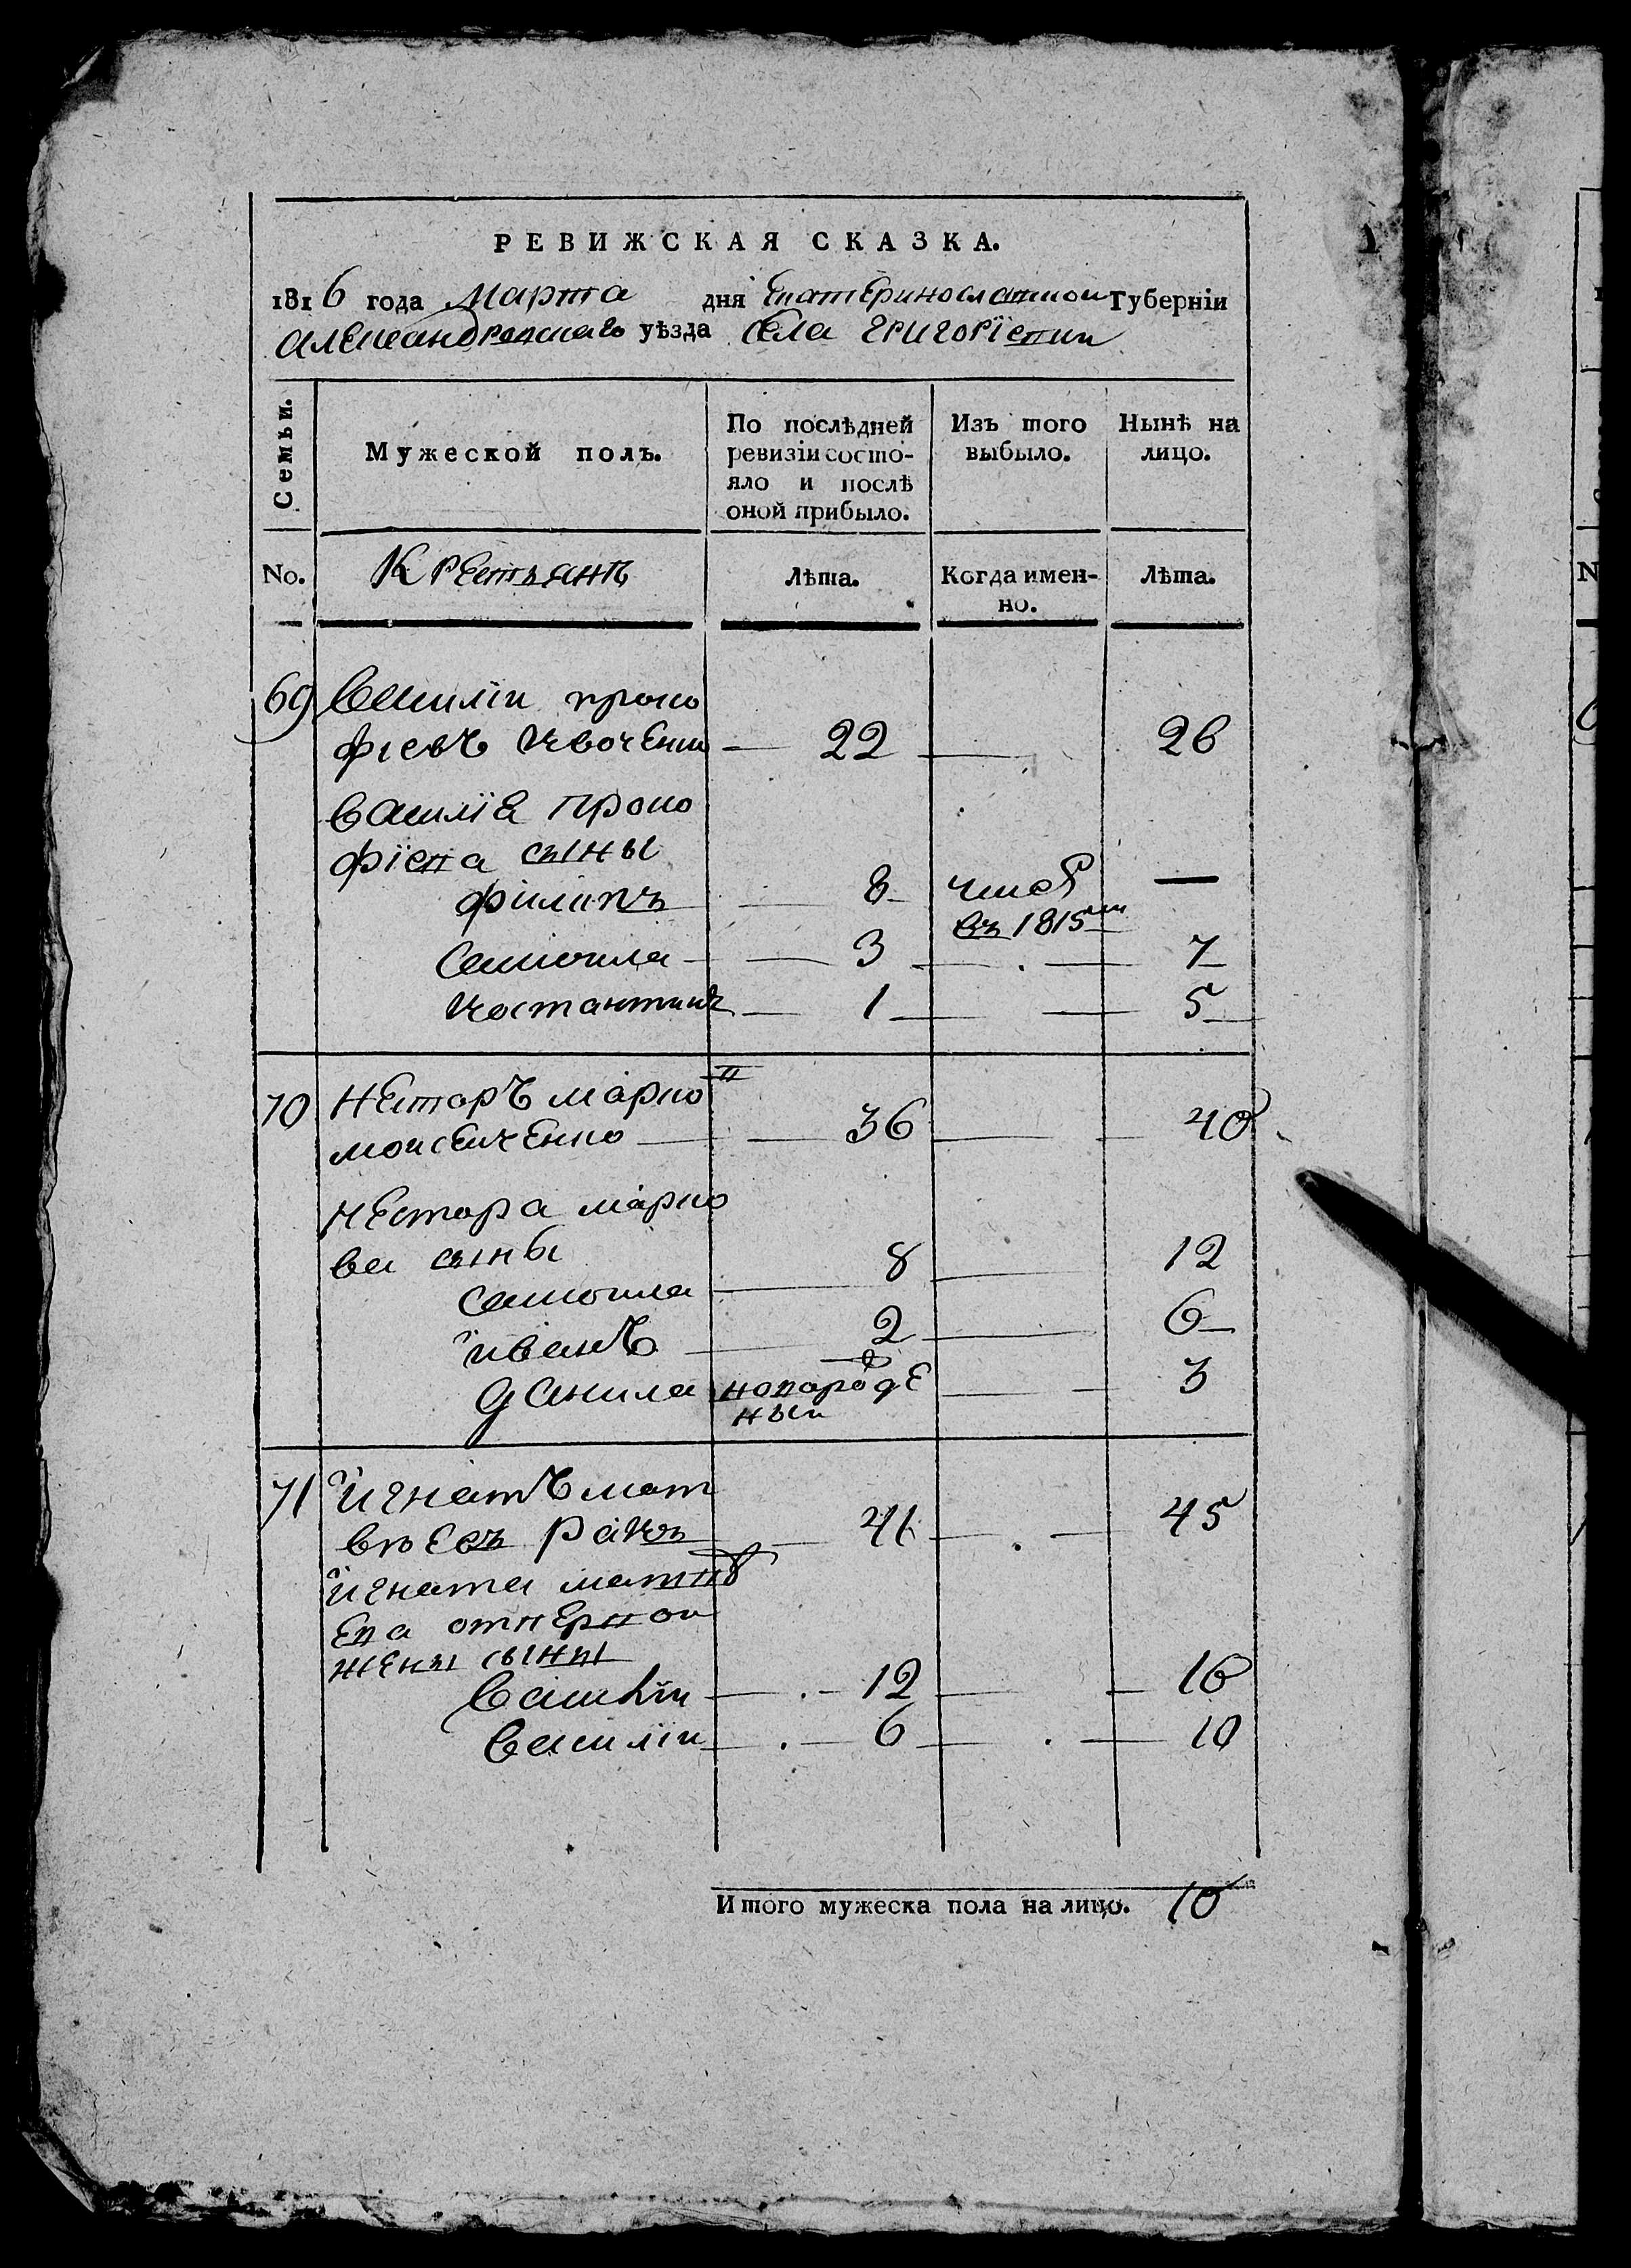 РЕВИЖСКАЯ СКАЗКА.
1816 года Марта дня Екатеринославской Губерніи
Александровскаго уѣзда села Григоріевки
Семьи.
Мужеской полъ.
По послѣдней ревизіи состо-
яло и послѣ оной прибыло.
Изъ того выбыло.
Нынѣ на лицо.
No.
Крестьянъ
Лѣта.
Когда имен-
но.
Лѣта.
69 Василій проко
фіевъ Квоченко 22 26
василіа проко
фіева сыны
филипъ 8 —
въ 1815м
самоила 3 7
Костантинъ 1 5
70 Несторъ марков
моисеиченко 36 40
Нестора марко
ва сыны
самоила 8 12
иванъ 2 6
данила новорожде
ныи 3
71 игнатъ мат
вѣевъ ракъ 41 45
игната матвѣ
ева отперной
жены сыны
василіи 12 16
василіи 6 10
Итого мужеска пола на лицо. 10